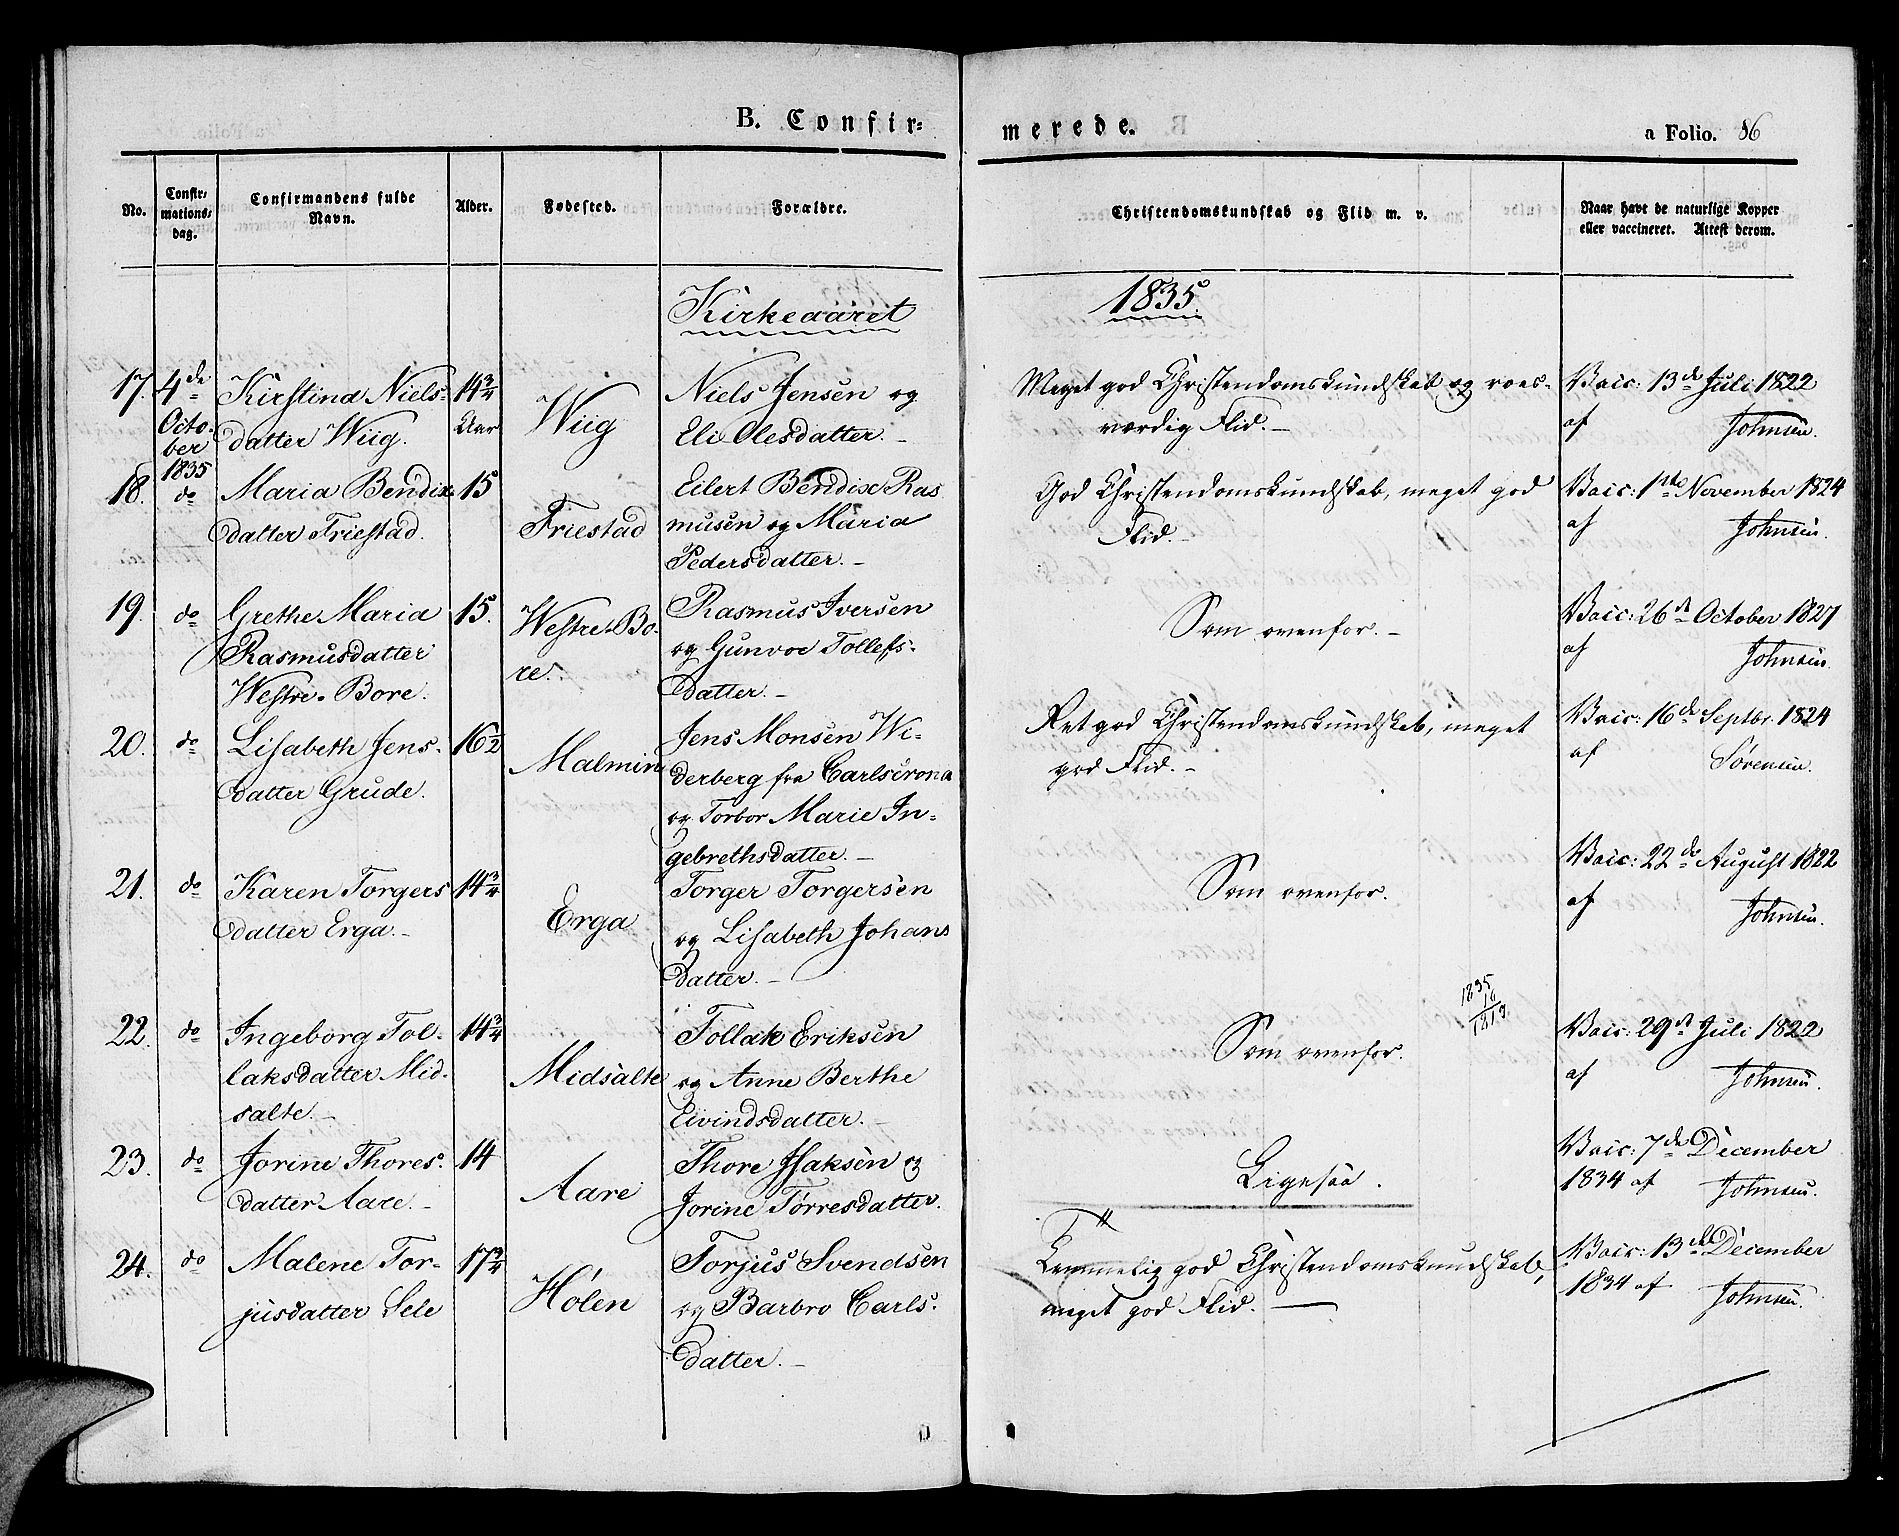 B. Confir-
merede.
a Folio. 86
No.
Confir-
mations-
dag.
Confirmandens fulde
Navn.
Alder.
Fødested.
Forældre.
Christendomskundskab og Flid m. v.
Naar havt de naturlige Kopper
eller vaccineret. Attest derom.
Kirkeaaret
1835
17.
4de
Octo-
ber
1835
Kirstina Niels-
datter Wiig.
14 3/4
Aar
Wiig
Niels Jensen og
Eli Olesdatter.-
Meget god Christendomskundskab og roes-
værdig Flid.-
Vaic: 13de Juli 1822
af Johnsen.
18.
do
Maria Bendix-
datter Friestad.
15
Friestad
Eilert Bendix Ras
musen og Maria
Pedersdatter.-
God Christendomskundskab, meget god
Flid.-
Vaic: 1ste November 1824
af Johnsen.
19.
do
Grethe Maria
Rasmusdatter
Westre-Bore.
15.
Westre-Bo-
re.
Rasmus Iversen
og Gunvor Tollefs-
datter.-
Som ovenfor.-
Vaic: 26d October 1827
af Johnsen.
20.
do
Lisabeth Jens-
datter Grude.
16 1/2
Malmin
Jens Monsen Wi-
derberg fra Carlscrona
og Torbor Marie In-
gebrethsdatter.-
Ret god Christendomskundskab, meget
god Flid.-
Vaic: 16de Septbr. 1824
af Sørensen.
21.
do
Karen Torgers
datter Erga.-
14 3/4
Erga
Torger Torgersen
og Lisabeth Johans
datter.-
Som ovenfor.
Vaic: 22de August 1822
af Johnsen.
22.
do
Ingeborg Tol-
laksdatter Mid-
salte.-
14 3/4
Midsalte
Tollak Eriksen
og Anne Berthe
Eivindsdatter.-
Som ovenfor.
1835
16
1819
Vaic: 29d Juli 1822
af Johnsen.
23.
do
Jorine Thores-
datter Aare.-
14
Aare
Thore Isaksen og
Jorine Tørresdatter.
Ligesaa.
Vaic: 7de December
1834 af Johnsen.
24.
do
Malene Tor-
jusdatter Sele
17 3/4
Hølen
Torjus Svendsen
og Barbro Carls-
datter.-
Temmelig god Christendomskundskab,
meget god Flid.-
Vaic: 13de December
1834 af Johnsen.